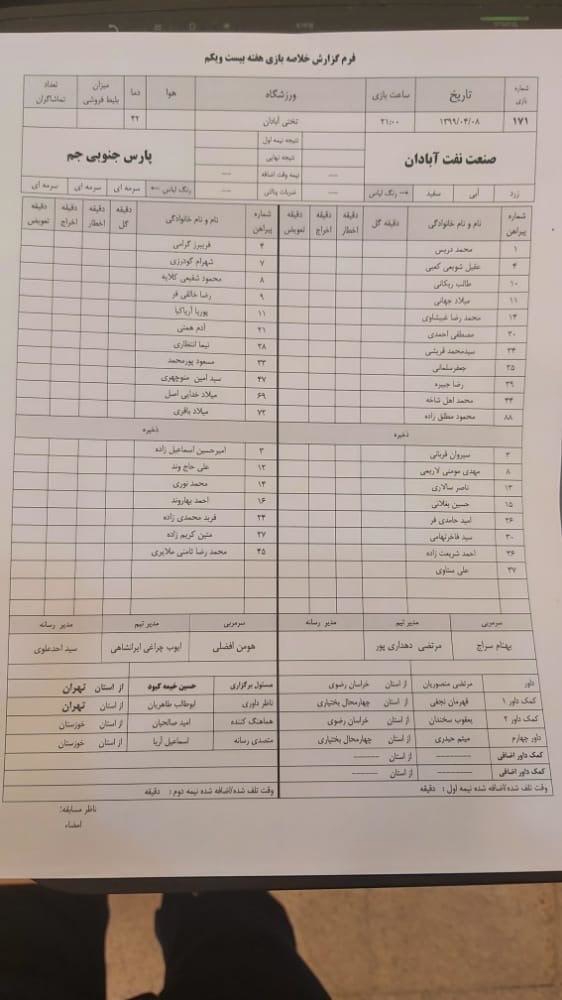 فرم گزارش خلاصه بازی هفته بیست ویکم
شماره بازی تاریخ ساعت بازی ورزشگاه هوا دما میزان بلیط فروشی تعداد تماشاگران
۱۷۱ ۱۳۹۹/۰۴/۰۸ ۲۱:۰۰ تختی آبادان ۴۲
صنعت نفت آبادان پارس جنوبی جم
نتیجه نیمه اول
نتیجه نهایی
--- نیمه وقت اضافه ---
زرد آبی سفید رنگ لباس --- ضربات پنالتی --- رنگ لباس سرمه ای سرمه ای سرمه ای
شماره پیراهن نام و نام خانوادگی دقیقه گل دقیقه اخطار دقیقه اخراج دقیقه تعویض شماره پیراهن نام و نام خانوادگی دقیقه گل دقیقه اخطار دقیقه اخراج دقیقه تعویض
۱ محمد دریس ۴ فریبرز گرامی
۴ عقیل شویعی کعبی ۷ شهرام گودرزی
۱۰ طالب ریکانی ۸ محمود شفیعی کلایه
۱۱ میلاد جهانی ۹ رضا خالقی فر
۱۴ محمد رضا غبیشاوی ۱۱ پوریا آریاکیا
۲۰ مصطفی احمدی ۲۱ آدم همتی
۲۴ سیدمحمد قریشی ۲۸ نیما انتظاری
۲۵ جعفرسلمانی ۳۳ مسعود پورمحمد
۳۹ رضا جبیره ۴۷ سید امین منوچهری
۴۴ محمد اهل شاخه ۶۹ میلاد خدایی اصل
۸۸ محمود مطلق زاده ۷۲ میلاد باقری
ذخیره ذخیره
۳ سیروان قربانی ۳ امیرحسین اسماعیل زاده
۸ مهدی مومنی لاریمی ۱۲ علی حاج وند
۱۳ ناصر سالاری ۱۴ محمد نوری
۱۵ حسین بغلانی ۱۶ احمد بهاروند
۲۶ امید حامدی فر ۲۴ فربد محمدی زاده
۳۰ سید فاخرتهامی ۲۷ متین کریم زاده
۳۶ احمد شریعت زاده ۴۵ محمد رضا ثامنی ملایری
۳۷ علی سناوی
سرمربی مدیر تیم مدیر رسانه سرمربی مدیر تیم مدیر رسانه
بهنام سراج مرتضی دهداری پور هومن افضلی ایوب چراغی ایرانشاهی سید احدعلوی
داور مرتضی منصوریان از استان خراسان رضوی مسئول برگزاری حسین خیمه کبود از استان تهران
کمک داور ۱ قهرمان نجفی از استان چهارمحال بختیاری ناظر داوری ابوطالب طاهریان از استان تهران
کمک داور ۲ یعقوب سخندان از استان خراسان رضوی هماهنگ کننده امید صالحیان از استان خوزستان
داور چهارم میثم حیدری از استان چهارمحال بختیاری متصدی رسانه اسماعیل آریا از استان خوزستان
کمک داور اضافی ---------- از استان --------
کمک داور اضافی ---------- از استان --------
وقت تلف شده/اضافه شده نیمه اول : دقیقه وقت تلف شده/اضافه شده نیمه دوم : دقیقه
ناظر مسابقه:
امضاء